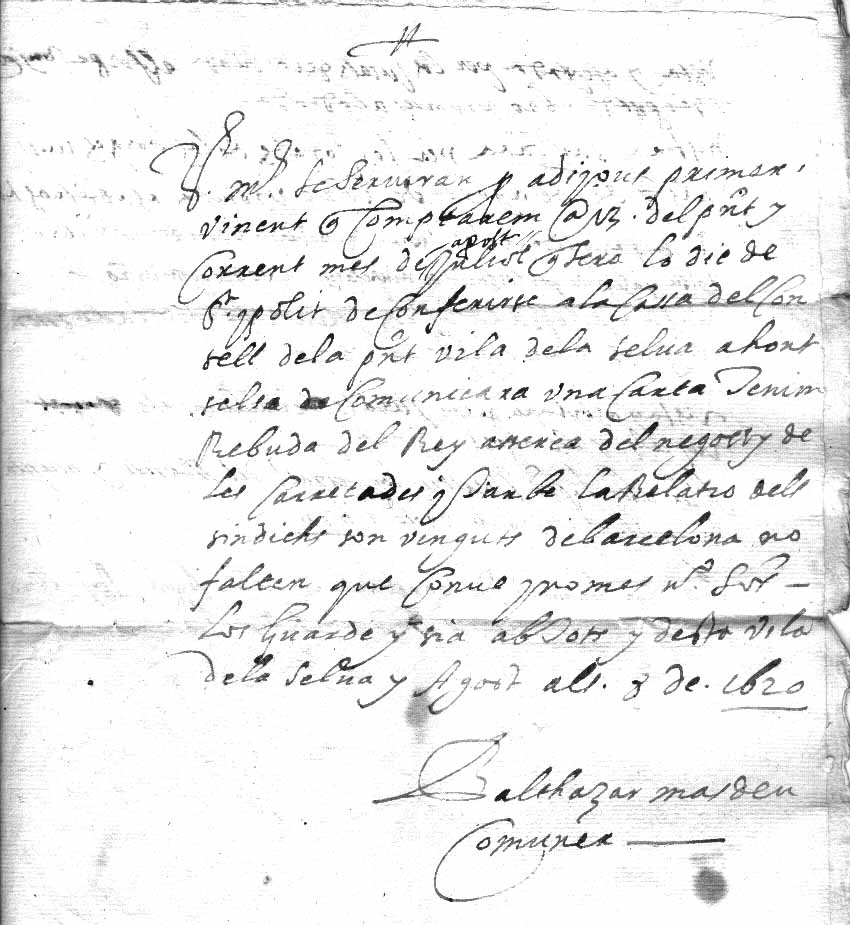 V. m.s se serviran y a dijous primer
vinent q Comptarem @ 13. del pnt y
Corrent mes de juliol agost q sera lo die de
St. ypolit de Conferirse a la Cassa del Con
sell dela pnt vila dela selva ahont
sels de Comunicara vna Carta Tenim
Rebuda del Rey asserca del negossy de
Les Carretades y tambe la Relatio dels
sindichs son vinguts de barcelona no
falten que Conve y nomes nr. Sor
Los Guarde y sia ab tots y desta vila
dela Selva y Agost als. 8 de. 1620
Balthazar masdeu
Comuner